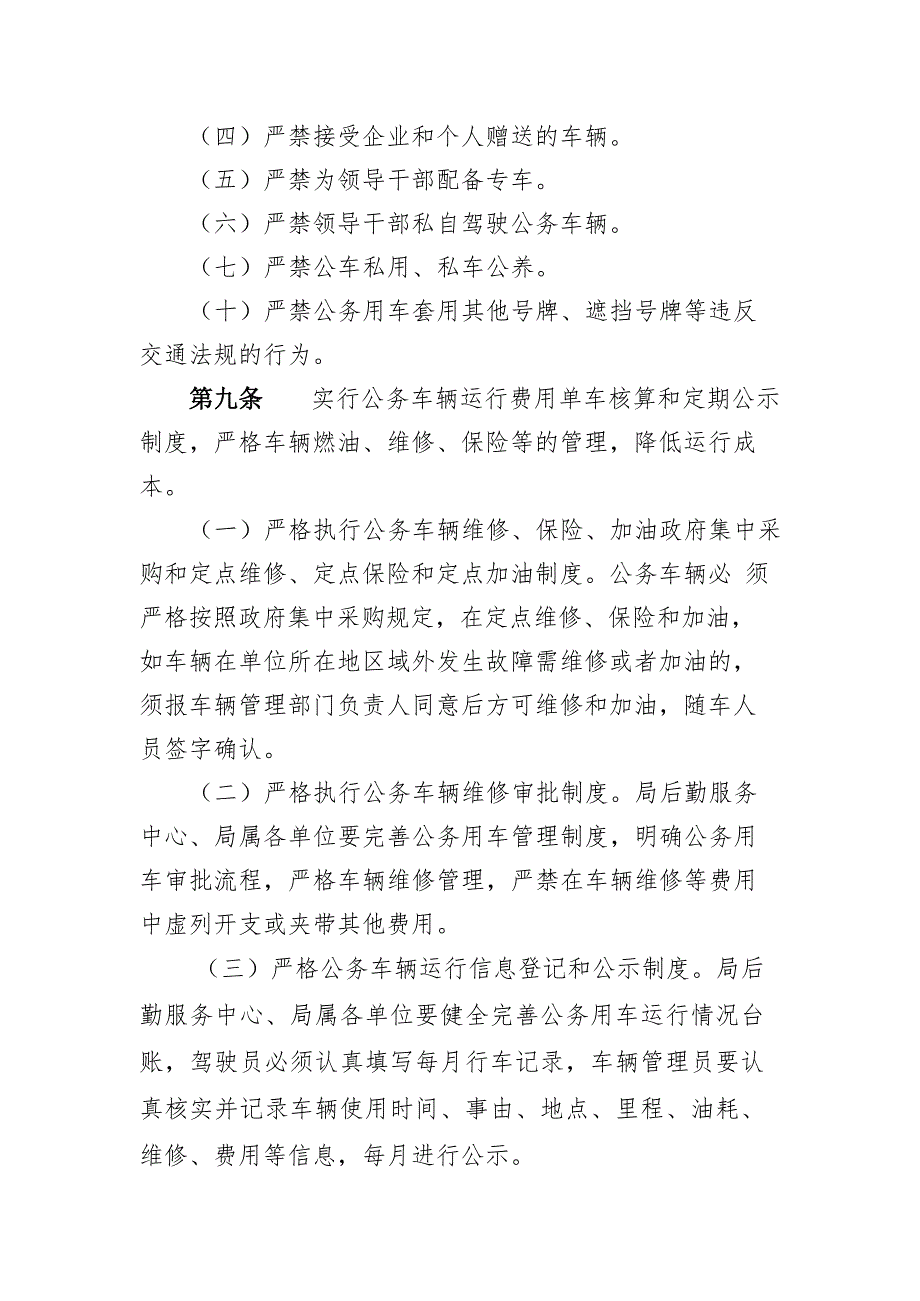 （四）严禁接受企业和个人赠送的车辆。
（五）严禁为领导干部配备专车。
（六）严禁领导干部私自驾驶公务车辆。
（七）严禁公车私用、私车公养。
（十）严禁公务用车套用其他号牌、遮挡号牌等违反
交通法规的行为。
第九条 实行公务车辆运行费用单车核算和定期公示
制度，严格车辆燃油、维修、保险等的管理，降低运行成
本。
（一）严格执行公务车辆维修、保险、加油政府集中采
购和定点维修、定点保险和定点加油制度。公务车辆必 须
严格按照政府集中采购规定，在定点维修、保险和加油，
如车辆在单位所在地区域外发生故障需维修或者加油的，
须报车辆管理部门负责人同意后方可维修和加油，随车人
员签字确认。
（二）严格执行公务车辆维修审批制度。局后勤服务
中心、局属各单位要完善公务用车管理制度，明确公务用
车审批流程，严格车辆维修管理，严禁在车辆维修等费用
中虚列开支或夹带其他费用。
（三）严格公务车辆运行信息登记和公示制度。局后
勤服务中心、局属各单位要健全完善公务用车运行情况台
账，驾驶员必须认真填写每月行车记录，车辆管理员要认
真核实并记录车辆使用时间、事由、地点、里程、油耗、
维修、费用等信息，每月进行公示。